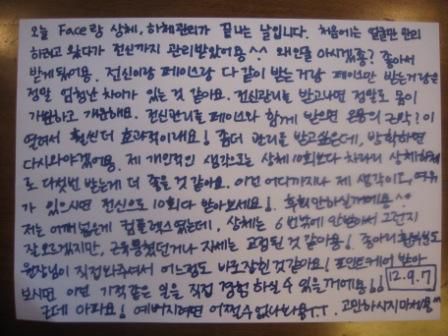 오늘 Face랑 상체, 하체관리가 끝나는 날입니다. 처음에는 얼굴만 관리
하려고 왔다가 전신까지 관리받았어용 ^^ 왜인줄 아시겠죵? 좋아서
받게됐어용. 전신이랑 페이스랑 다 같이 받는거랑 페이스만 받는거랑은
정말 엄청난 차이가 있는 것 같아요. 전신관리를 받고나면 정말로 몸이
가볍고 개운해요. 전신관리를 페이스와 함께 받으면 온몸의 근막? 이
열려서 훨씬더 효과적이래요! 좀더 관리를 받고싶은데, 방학하면
다시와야겠어용. 제 개인적인 생각으로는 상체 10회보다 차라리 상체하체
로 다섯번 받는게 더 좋을 것 같아요. 이건 어디까지나 제 생각이고, 여유
가 있으시면 전신으로 10회 다 받아보세요! 후회안하실꺼에용 ^^
저는 어깨넓은게 컴플렉스였는데, 상체는 6번밖에 안받아서 그런지
잘모르겠지만, 근육뭉쳤던거나 자세는 교정된 것 같아용! 종아리휜부분도
원장님이 직접봐주셔서 어느정도 바로잡힌것같아요! 포인트케어 받아
보시면 이런 기적같은 일을 직접 경험 하실 수 있을꺼에용!! 12.9.7
근데 아파요! 예뻐지려면 어쩔수없나봐용 T.T. 고민하시지마세용 ^^